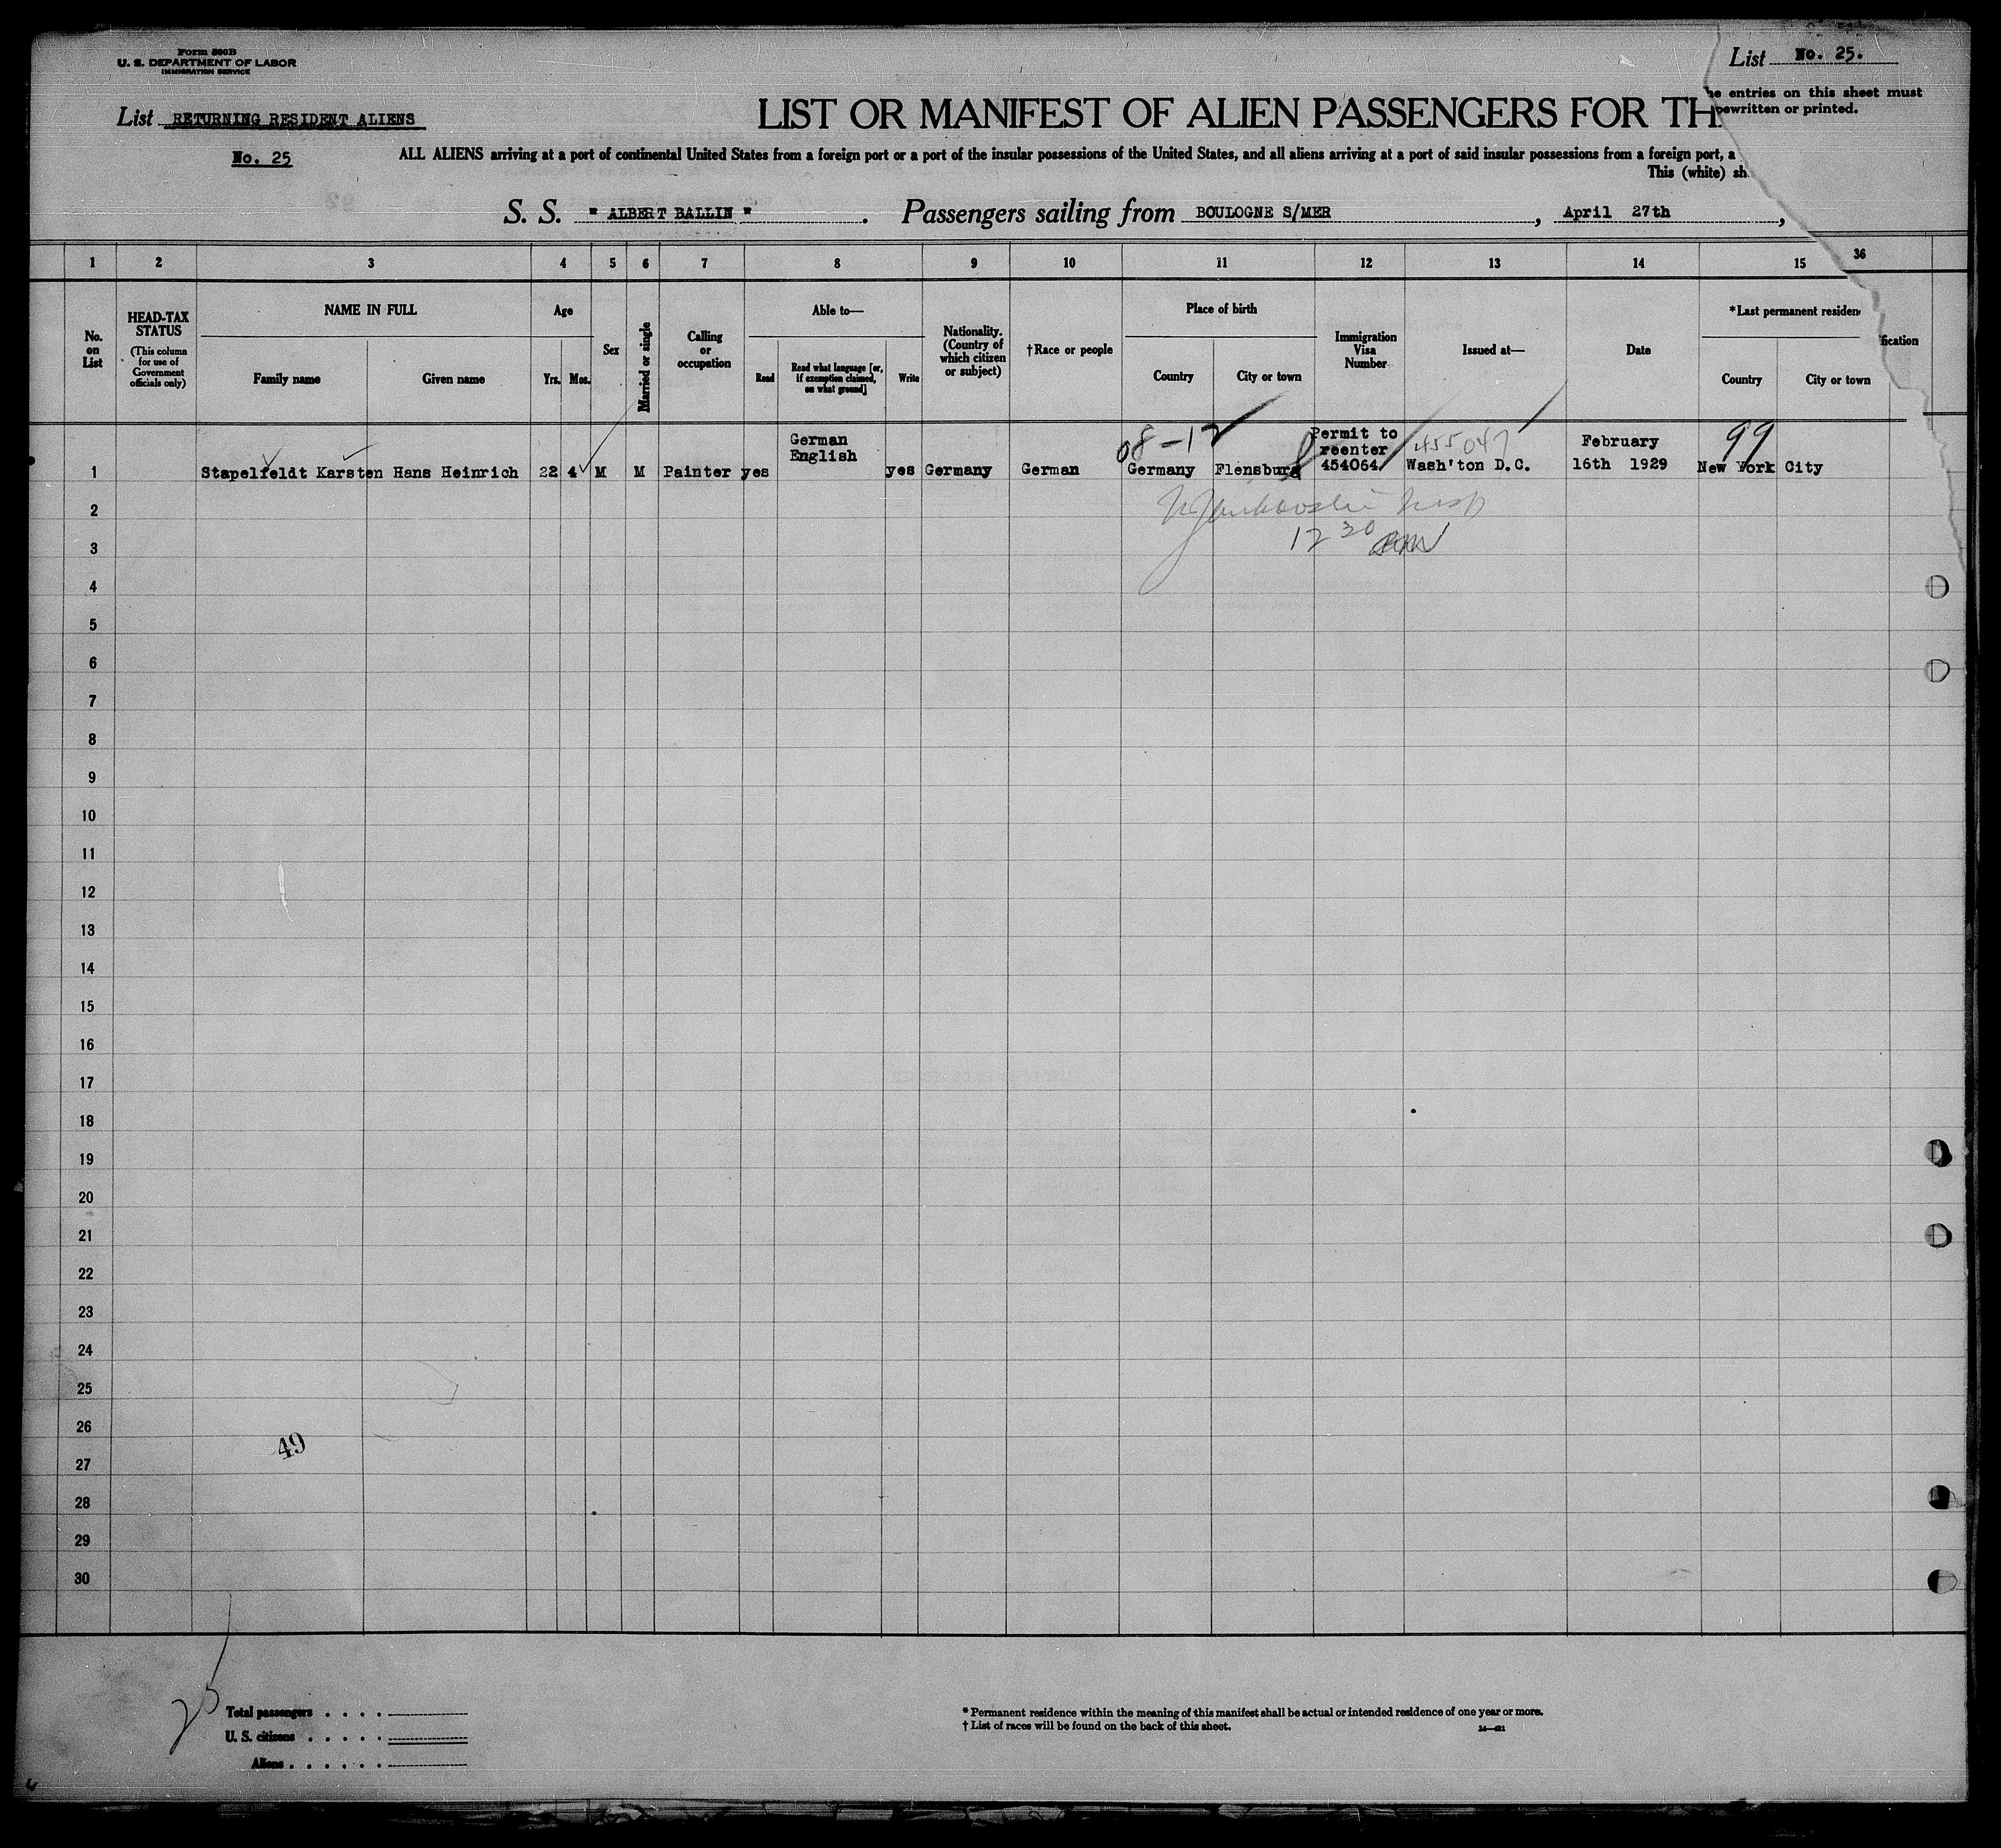 Form 500B
U. S. DEPARTMENT OF LABOR
IMMIGRATION SERVICE
List No. 25.
he entries on this sheet must
pewritten or printed.
List RETURNING RESIDENT ALIENS
No. 25
LIST OR MANIFEST OF ALIEN PASSENGERS FOR TH
ALL ALIENS arriving at a port of continental United States from a foreign port or a port of the insular possessions of the United States, and all aliens arriving at a port of said insular possessions from a foreign port, a
This (white) sh
S. S. " ALBERT BALLIN " . Passengers sailing from BOULOGNE S/MER , April 27th ,
1 2 3 4 5 6 7 8 9 10 11 12 13 14 15 36
No. on List
HEAD-TAX STATUS
(This column for use of Government officials only)
NAME IN FULL
Family name Given name
Age
Yrs. Mos.
Sex
Married or single
Calling or occupation
Able to—
Read
Read what language [or, if exemption claimed, on what ground]
Write
Nationality. (Country of which citizen or subject)
†Race or people
Place of birth
Country City or town
Immigration Visa Number
Issued at—
Date
*Last permanent residen
Country City or town
fication
08-12
455047
99
1 Stapelfeldt Karsten Hans Heinrich 22 4 M M Painter yes German English yes Germany German Germany Flensburg Permit to reenter 454064 Wash'ton D.C. February 16th 1929 New York City
2
12 30
3
4
5
6
7
8
9
10
11
12
13
14
15
16
17
18
19
20
21
22
23
24
25
26
49
27
28
29
30
25
Total passengers . . . .
U. S. citizens . . . . .
Aliens . . . . . .
* Permanent residence within the meaning of this manifest shall be actual or intended residence of one year or more.
† List of races will be found on the back of this sheet.